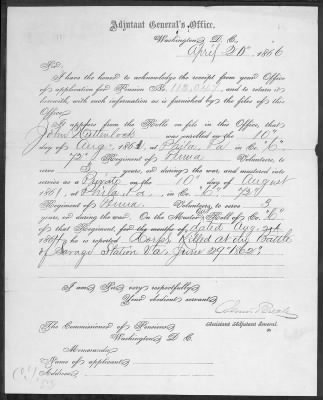 Adjutant General's Office,
Washington, D. C.
April 21st, 1866
Sir:
I have the honor to acknowledge the receipt from your Office
of application for Pension No. and to return it
herewith, with such information as is furnished by the files of this
Office.
It appears from the Rolls on file in this Office, that
John was enrolled on the 10"
day of Aug. 1861, at Phila. Pa in Co. "C"
"72" Regiment of Penna Volunteers, to
serve 3 years, or during the war, and mustered into
service as a Private on the 10" day of August
1861, at Phila. Pa., in Co. "C" "72"
Regiment of Penna. Volunteers, to serve 3
years, or during the war. On the Muster Roll of Co. "C"
of that Regiment, for the months of dated Aug.
186 he is reported Corpl. Killed at the Battle
of Savage Station Va. June 29" 1862.
I am Sir, very respectfully,
Your obedient servant,
Assistant Adjutant General.
The Commissioner of Pensions,
Washington, D. C.
Memoranda:
Name of applicant
Address